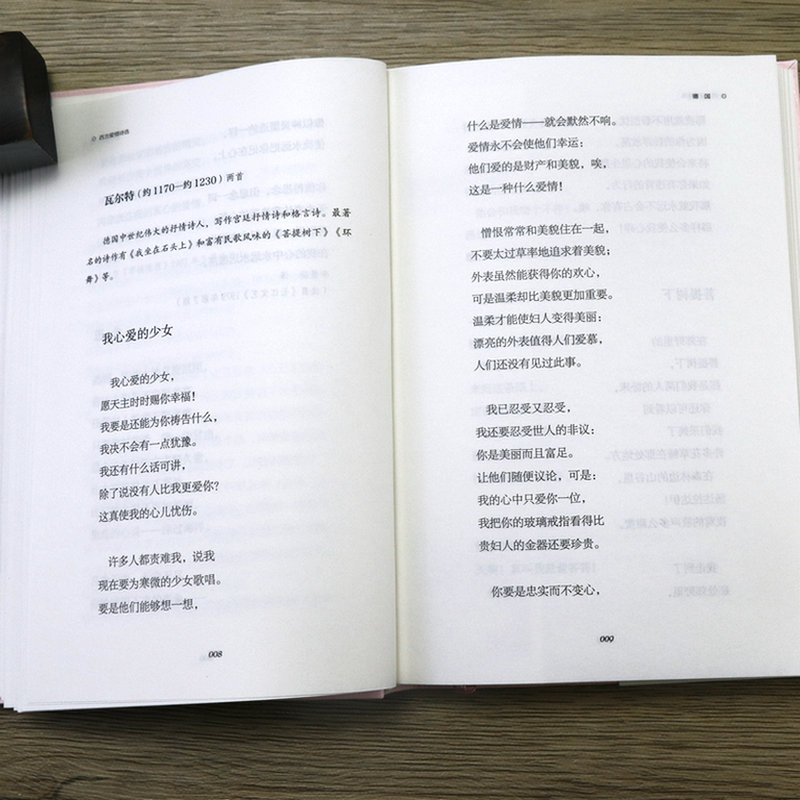 西方爱情诗选
瓦尔特（约1170—约1230）两首
德国中世纪伟大的抒情诗人，写作宫廷抒情诗和格言诗。最著
名的诗作有《我坐在石头上》和富有民歌风味的《菩提树下》《环
舞》等。
我心爱的少女
我心爱的少女，
愿天主时时赐你幸福！
我要是还能为你祷告什么，
我决不会有一点犹豫。
我还有什么话可讲，
除了说没有人比我更爱你？
这真使我的心儿忧伤。
许多人都责难我，说我
现在要为寒微的少女歌唱。
要是他们能够想一想，
008
德 国
什么是爱情——就会默然不响。
爱情永不会使他们幸运：
他们爱的是财产和美貌，唉，
这是一种什么爱情！
憎恨常常和美貌住在一起，
不要太过草率地追求着美貌；
外表虽然能获得你的欢心，
可是温柔却比美貌更加重要。
温柔才能使妇人变得美丽：
漂亮的外表值得人们爱慕，
人们还没有见过此事。
我已忍受又忍受，
我还要忍受世人的非议：
你是美丽而且富足。
让他们随便议论，可是：
我的心中只爱你一位，
我把你的玻璃戒指看得比
贵妇人的金器还要珍贵。
你要是忠实而不变心，
009